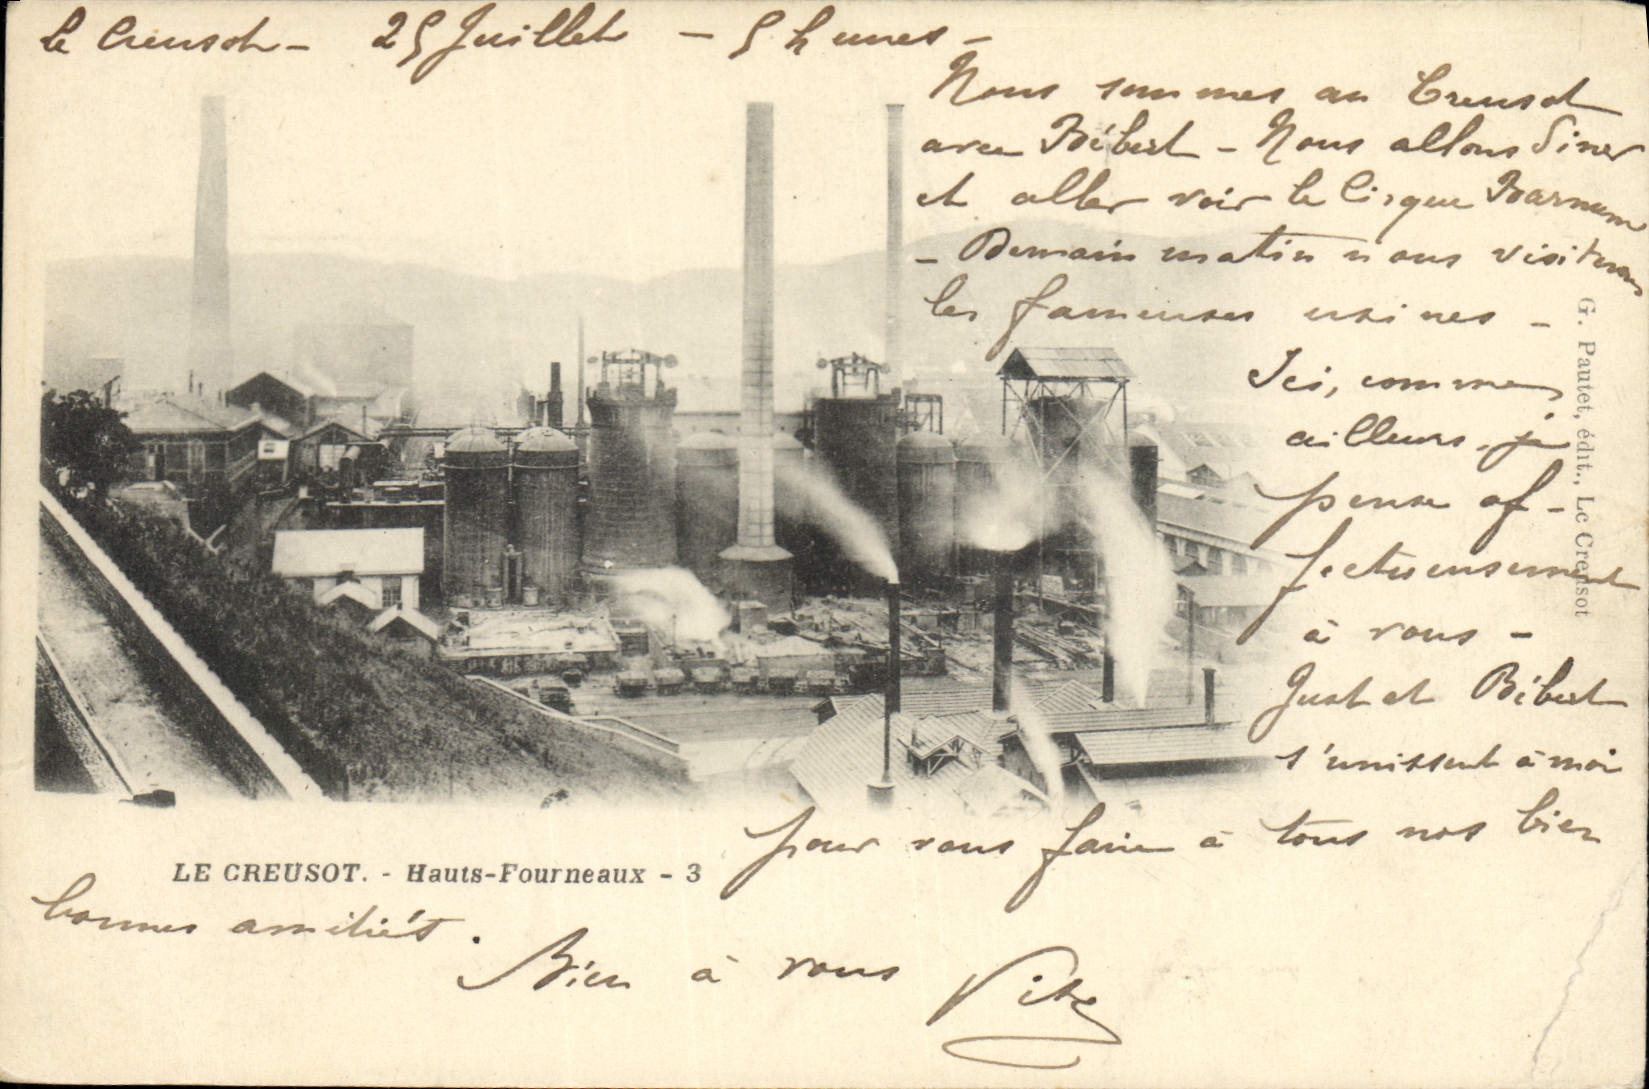 Le Creusot - 25 Juillet - 5 heures -
Nous sommes au Creusot
avec Bébert - Nous allons diner
et aller voir le Cirque Barnum
- Demain matin nous visiterons
les fameuses usines -
Ici, comme
ailleurs, je
pense af-
fectueusement
à vous -
Just et Bébert
s'unissent à moi
pour vous faire à tous nos bien
bonnes amitiés.
Bien à vous
LE CREUSOT. - Hauts-Fourneaux - 3
G. Pautet, édit., Le Creusot